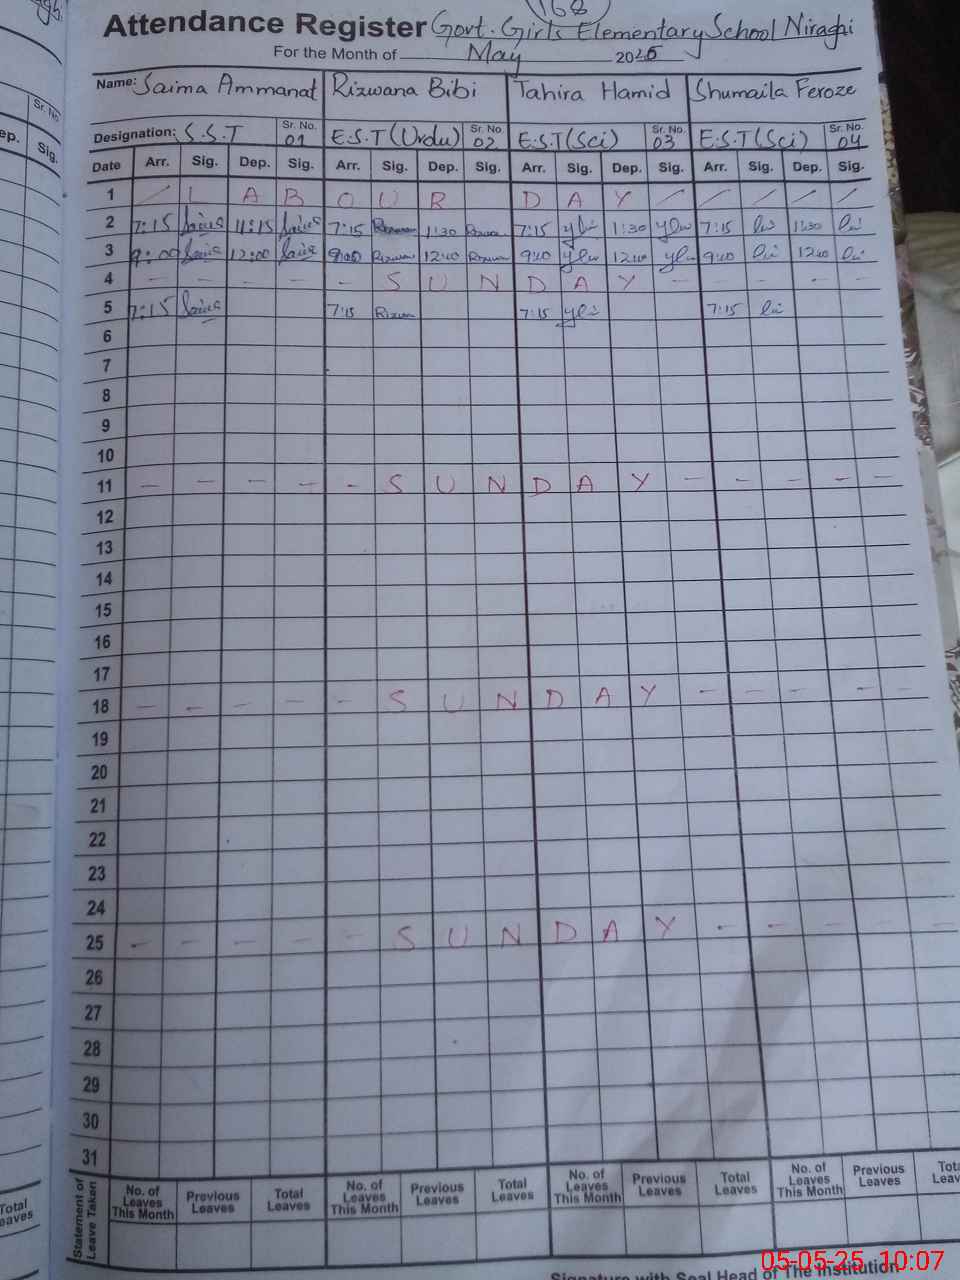 168
Attendance Register Govt. Girls Elementary School Niraghi
For the Month of May 2025
Name: Saima Ammanat Rizwana Bibi Tahira Hamid Shumaila Feroze
Designation: S.S.T Sr. No. 01 E.S.T (Urdu) Sr. No. 02 E.S.T (Sci) Sr. No. 03 E.S.T (Sci) Sr. No. 04
Date Arr. Sig. Dep. Sig. Arr. Sig. Dep. Sig. Arr. Sig. Dep. Sig. Arr. Sig. Dep. Sig.
1 / L A B O U R D A Y / / / / /
2 7:15 11:15 7:15 1:30 7:15 1:30 7:15 1:30
3 9:00 12:00 9:00 12:00 9:00 12:00 9:00 12:00
4 - - - - - S U N D A Y - - - - -
5 7:15 7:15 Rizwan 7:15 7:15
6
7
8
9
10
11 - - - - - S U N D A Y - - - - -
12
13
14
15
16
17
18 - - - - - S U N D A Y - - - - -
19
20
21
22
23
24
25 - - - - - S U N D A Y - - - - -
26
27
28
29
30
31
Statement of Leave Taken
No. of Leaves This Month Previous Leaves Total Leaves No. of Leaves This Month Previous Leaves Total Leaves No. of Leaves This Month Previous Leaves Total Leaves No. of Leaves This Month Previous Leaves Total
Signature with Seal Head of The Institution
05-05-25 10:07
Sr. No.
Dep. Sig.
Total Leaves